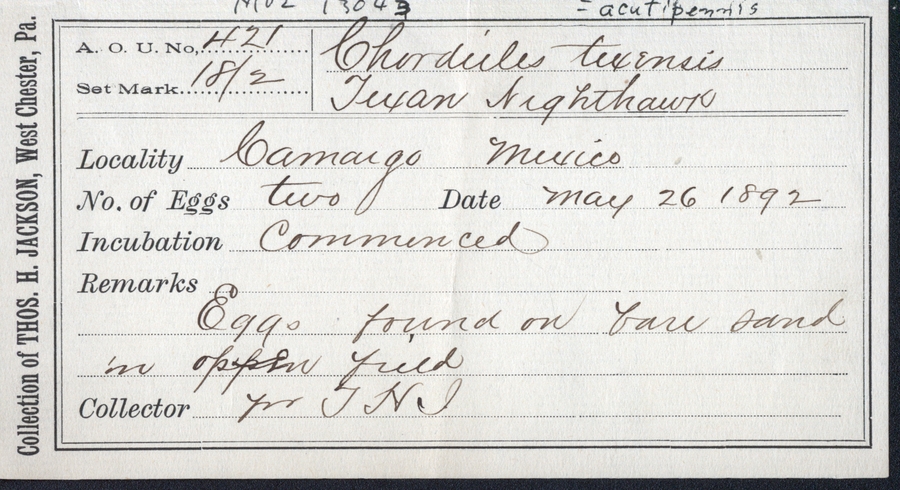 13043
= acutipennis
Collection of THOS. H. JACKSON, West Chester, Pa.
A. O. U. No. 421
Set Mark 18/2
Chordeiles texensis
Texan Nighthawk
Locality Camargo Mexico
No. of Eggs two Date May 26 1892
Incubation Commenced
Remarks
Eggs found on bare sand
in open field
Collector pr